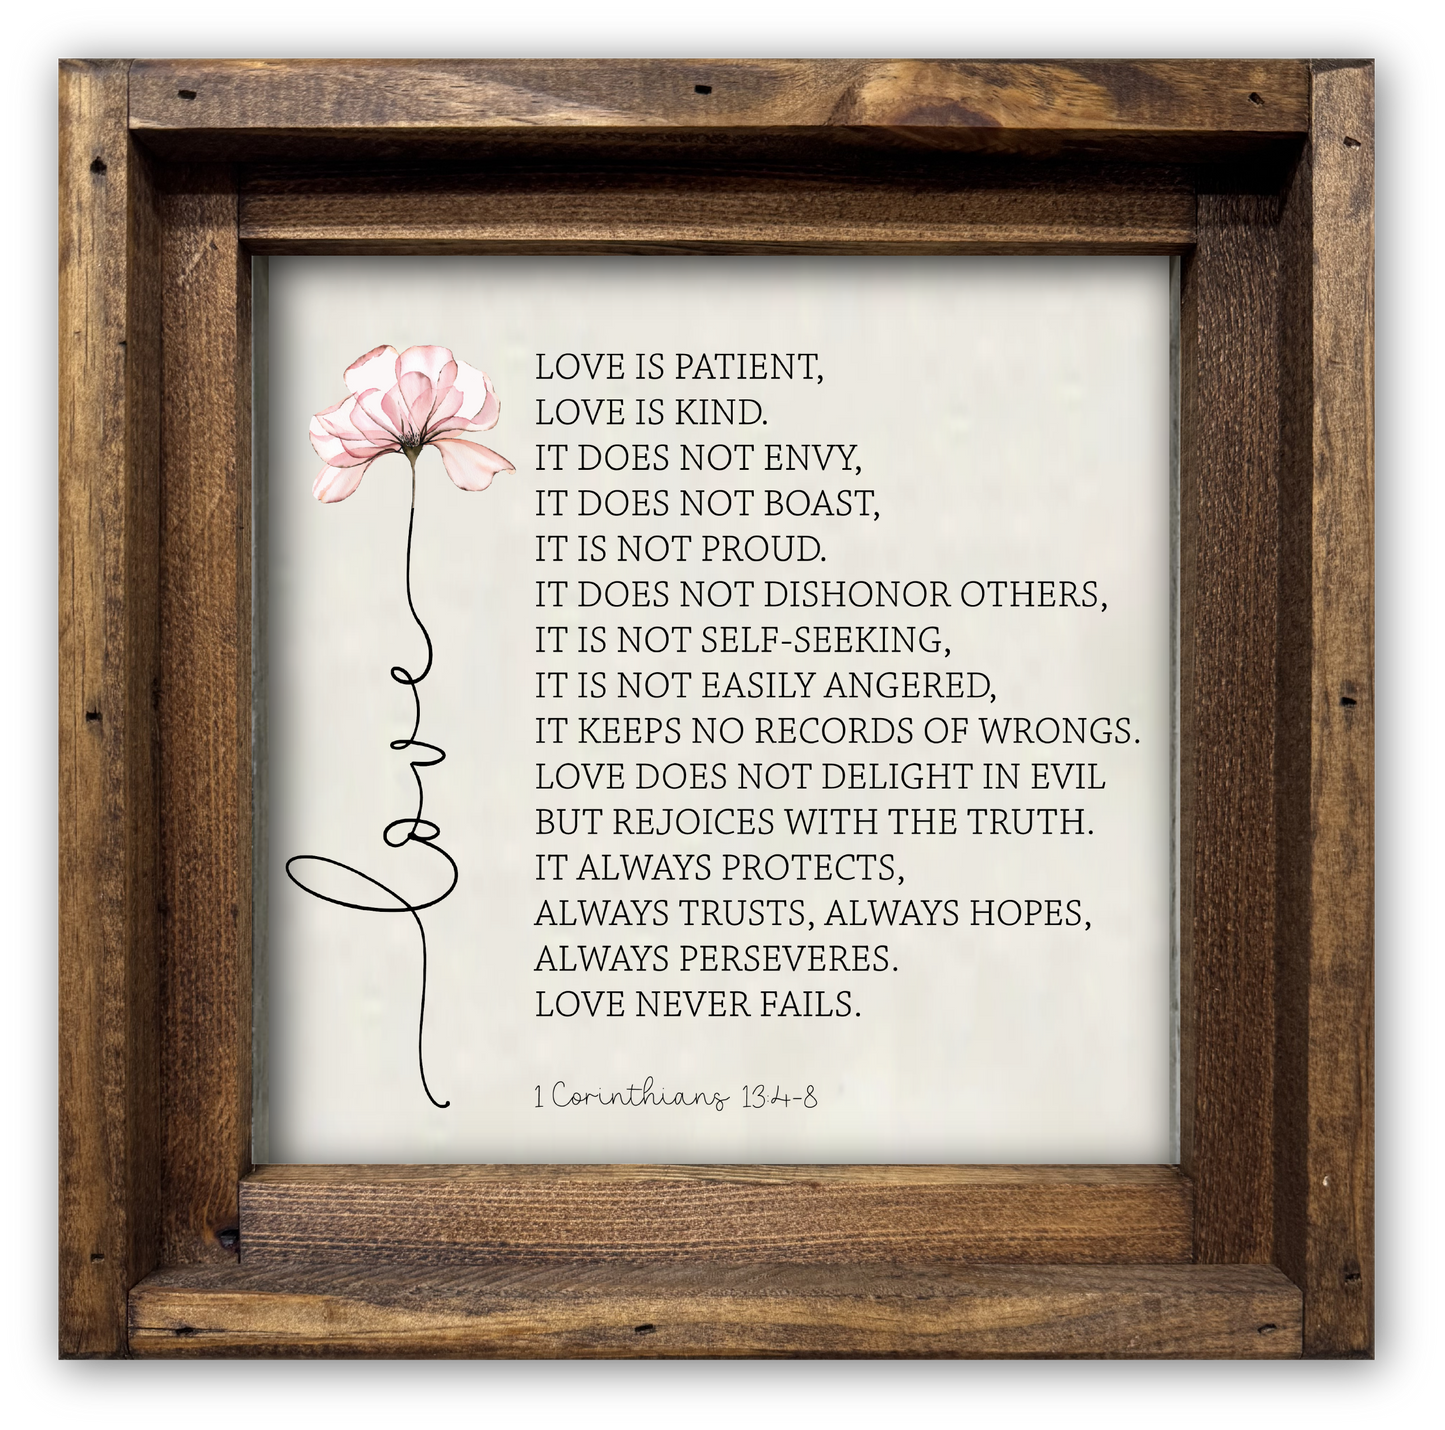 love
LOVE IS PATIENT,
LOVE IS KIND.
IT DOES NOT ENVY,
IT DOES NOT BOAST,
IT IS NOT PROUD.
IT DOES NOT DISHONOR OTHERS,
IT IS NOT SELF-SEEKING,
IT IS NOT EASILY ANGERED,
IT KEEPS NO RECORDS OF WRONGS.
LOVE DOES NOT DELIGHT IN EVIL
BUT REJOICES WITH THE TRUTH.
IT ALWAYS PROTECTS,
ALWAYS TRUSTS, ALWAYS HOPES,
ALWAYS PERSEVERES.
LOVE NEVER FAILS.
1 Corinthians 13:4-8